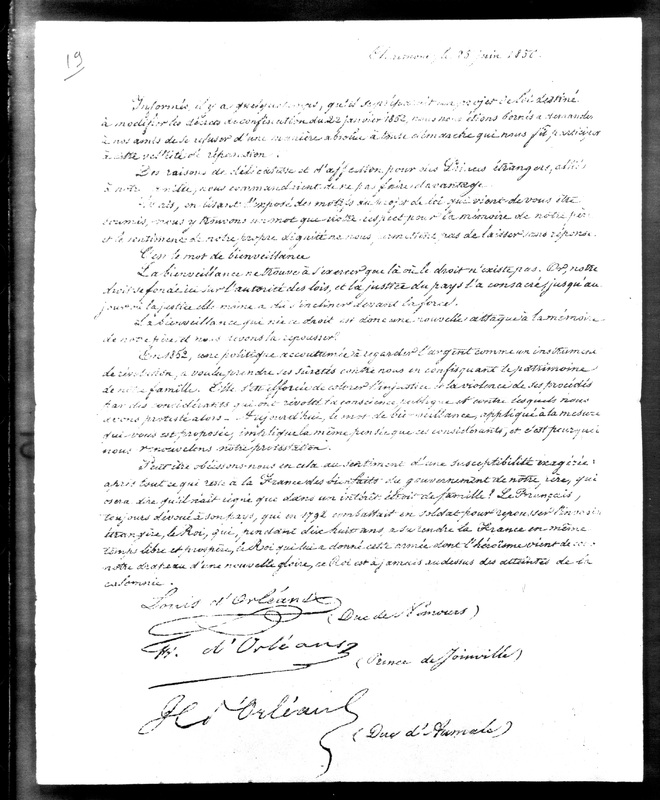 19
Claremont, le 25 juin 1856.
Informés, il y a quelque temps, qu'il se préparait un projet de loi destiné
à modifier les décrets de confiscation du 22 janvier 1852, nous nous étions bornés à demander
à nos amis de se refuser d'une manière absolue à toute démarche qui nous fît participer
à cette velléité de réparation.
Des raisons de délicatesse et d'affection pour des Princes étrangers, alliés
à notre famille, nous commandaient de ne pas faire davantage.
Mais, en lisant l'exposé des motifs du projet de loi qui vient de vous être
soumis, nous y trouvons un mot que notre respect pour la mémoire de notre père
et le sentiment de notre propre dignité ne nous permettent pas de laisser sans réponse.
C'est le mot de bienveillance.
La bienveillance ne trouve à s'exercer que là où le droit n'existe pas. Or, notre
droit se fonde ici sur l'autorité des lois, et la justice du pays l'a consacré jusqu'au
jour où la justice elle même a dû s'incliner devant la force.
La bienveillance qui nie ce droit est donc une nouvelle attaque à la mémoire
de notre père et nous devons la repousser.
En 1852, une politique accoutumée à regarder l'argent comme un instrument
de révolution, a voulu prendre ses sûretés contre nous en confisquant le patrimoine
de notre famille. Elle s'est efforcée de colorer l'injustice et la violence de ses procédés
par des considérants qui ont révolté la conscience publique et contre lesquels nous
avons protesté alors. Aujourd'hui, le mot de bienveillance, appliqué à la mesure
qui vous est proposée, implique la même pensée que ces considérants, et c'est pourquoi
nous renouvelons notre protestation.
Peut être obéissons-nous en cela au sentiment d'une susceptibilité exagérée:
après tout ce qui reste à la France des bienfaits du gouvernement de notre père, qui
osera dire qu'il n'ait régné que dans un intérêt étroit de famille! Le Français,
toujours dévoué à son pays, qui en 1792 combattait en soldat pour repousser l'invasion
étrangère, le Roi, qui, pendant dix huit ans, a su rendre la France en même
temps libre et prospère, le Roi qui lui a donné cette armée dont l'héroïsme vient de
notre drapeau d'une nouvelle gloire, ce Roi est à jamais au dessus des atteintes de la
calomnie.
Louis d'Orléans
(Duc de Nemours)
Fr. d'Orléans
(Prince de Joinville)
H d'Orléans
(Duc d'Aumale)